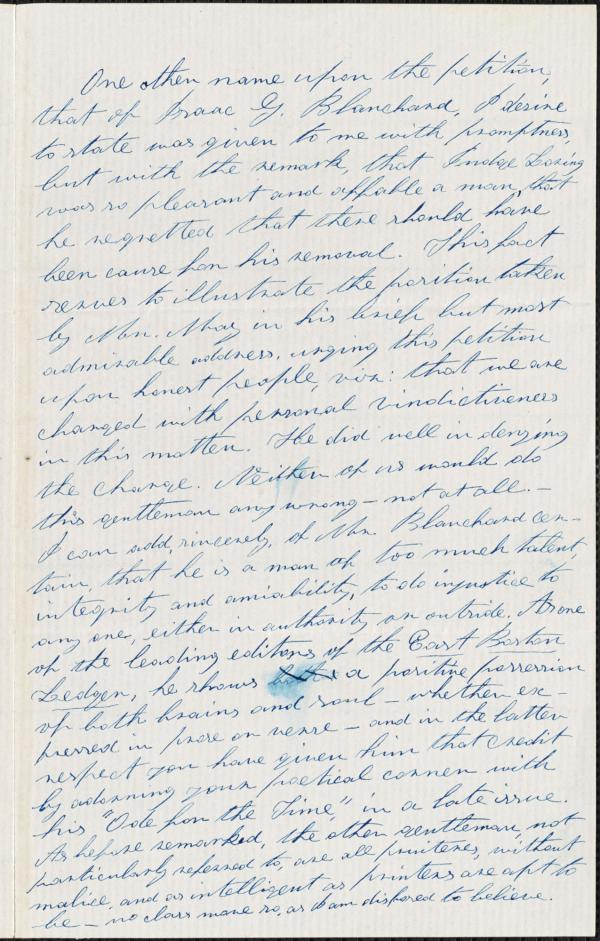 One other name upon the petition,
that of Isaac G. Blanchard, I desire
to state was given to me with promptness,
but with the remark, that Judge Loring
was so pleasant and affable a man, that
he regretted that there should have
been cause for his removal. This fact
serves to illustrate the position taken
by Mr. May in his brief but most
admirable address, urging this petition
upon honest people, viz: that we are
charged with personal vindictiveness
in this matter. He did well in denying
the charge. Neither of us would do
this gentleman any wrong – not at all. –
I can add, sincerely, of Mr. Blanchard cer-
tain, that he is a man of too much talent,
integrity and amiability, to do injustice to
any one, either in authority or outside. As one
of the leading editors of the East Boston
Ledger, he shows a positive possession
of both brains and soul – whether ex-
pressed in prose or verse – and in the latter
respect you have given him that credit
by adorning your poetical corner with
his "Ode for the Time," in a late issue.
As before remarked, the other gentleman, not
particularly referred to, are all printers, without
malice, and as intelligent as printers are apt to
be – no class more so, as I am disposed to believe.